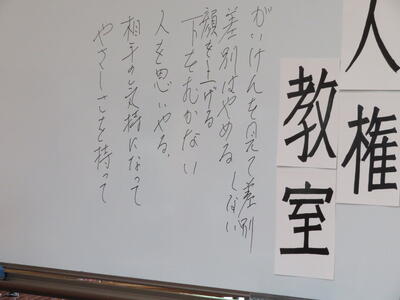 人権
教室
がいけんを見て差別
しない
差別はやめる
顔を上げる
下をむかない
人を思いやる。
相手の気持になって
やさしさを持って